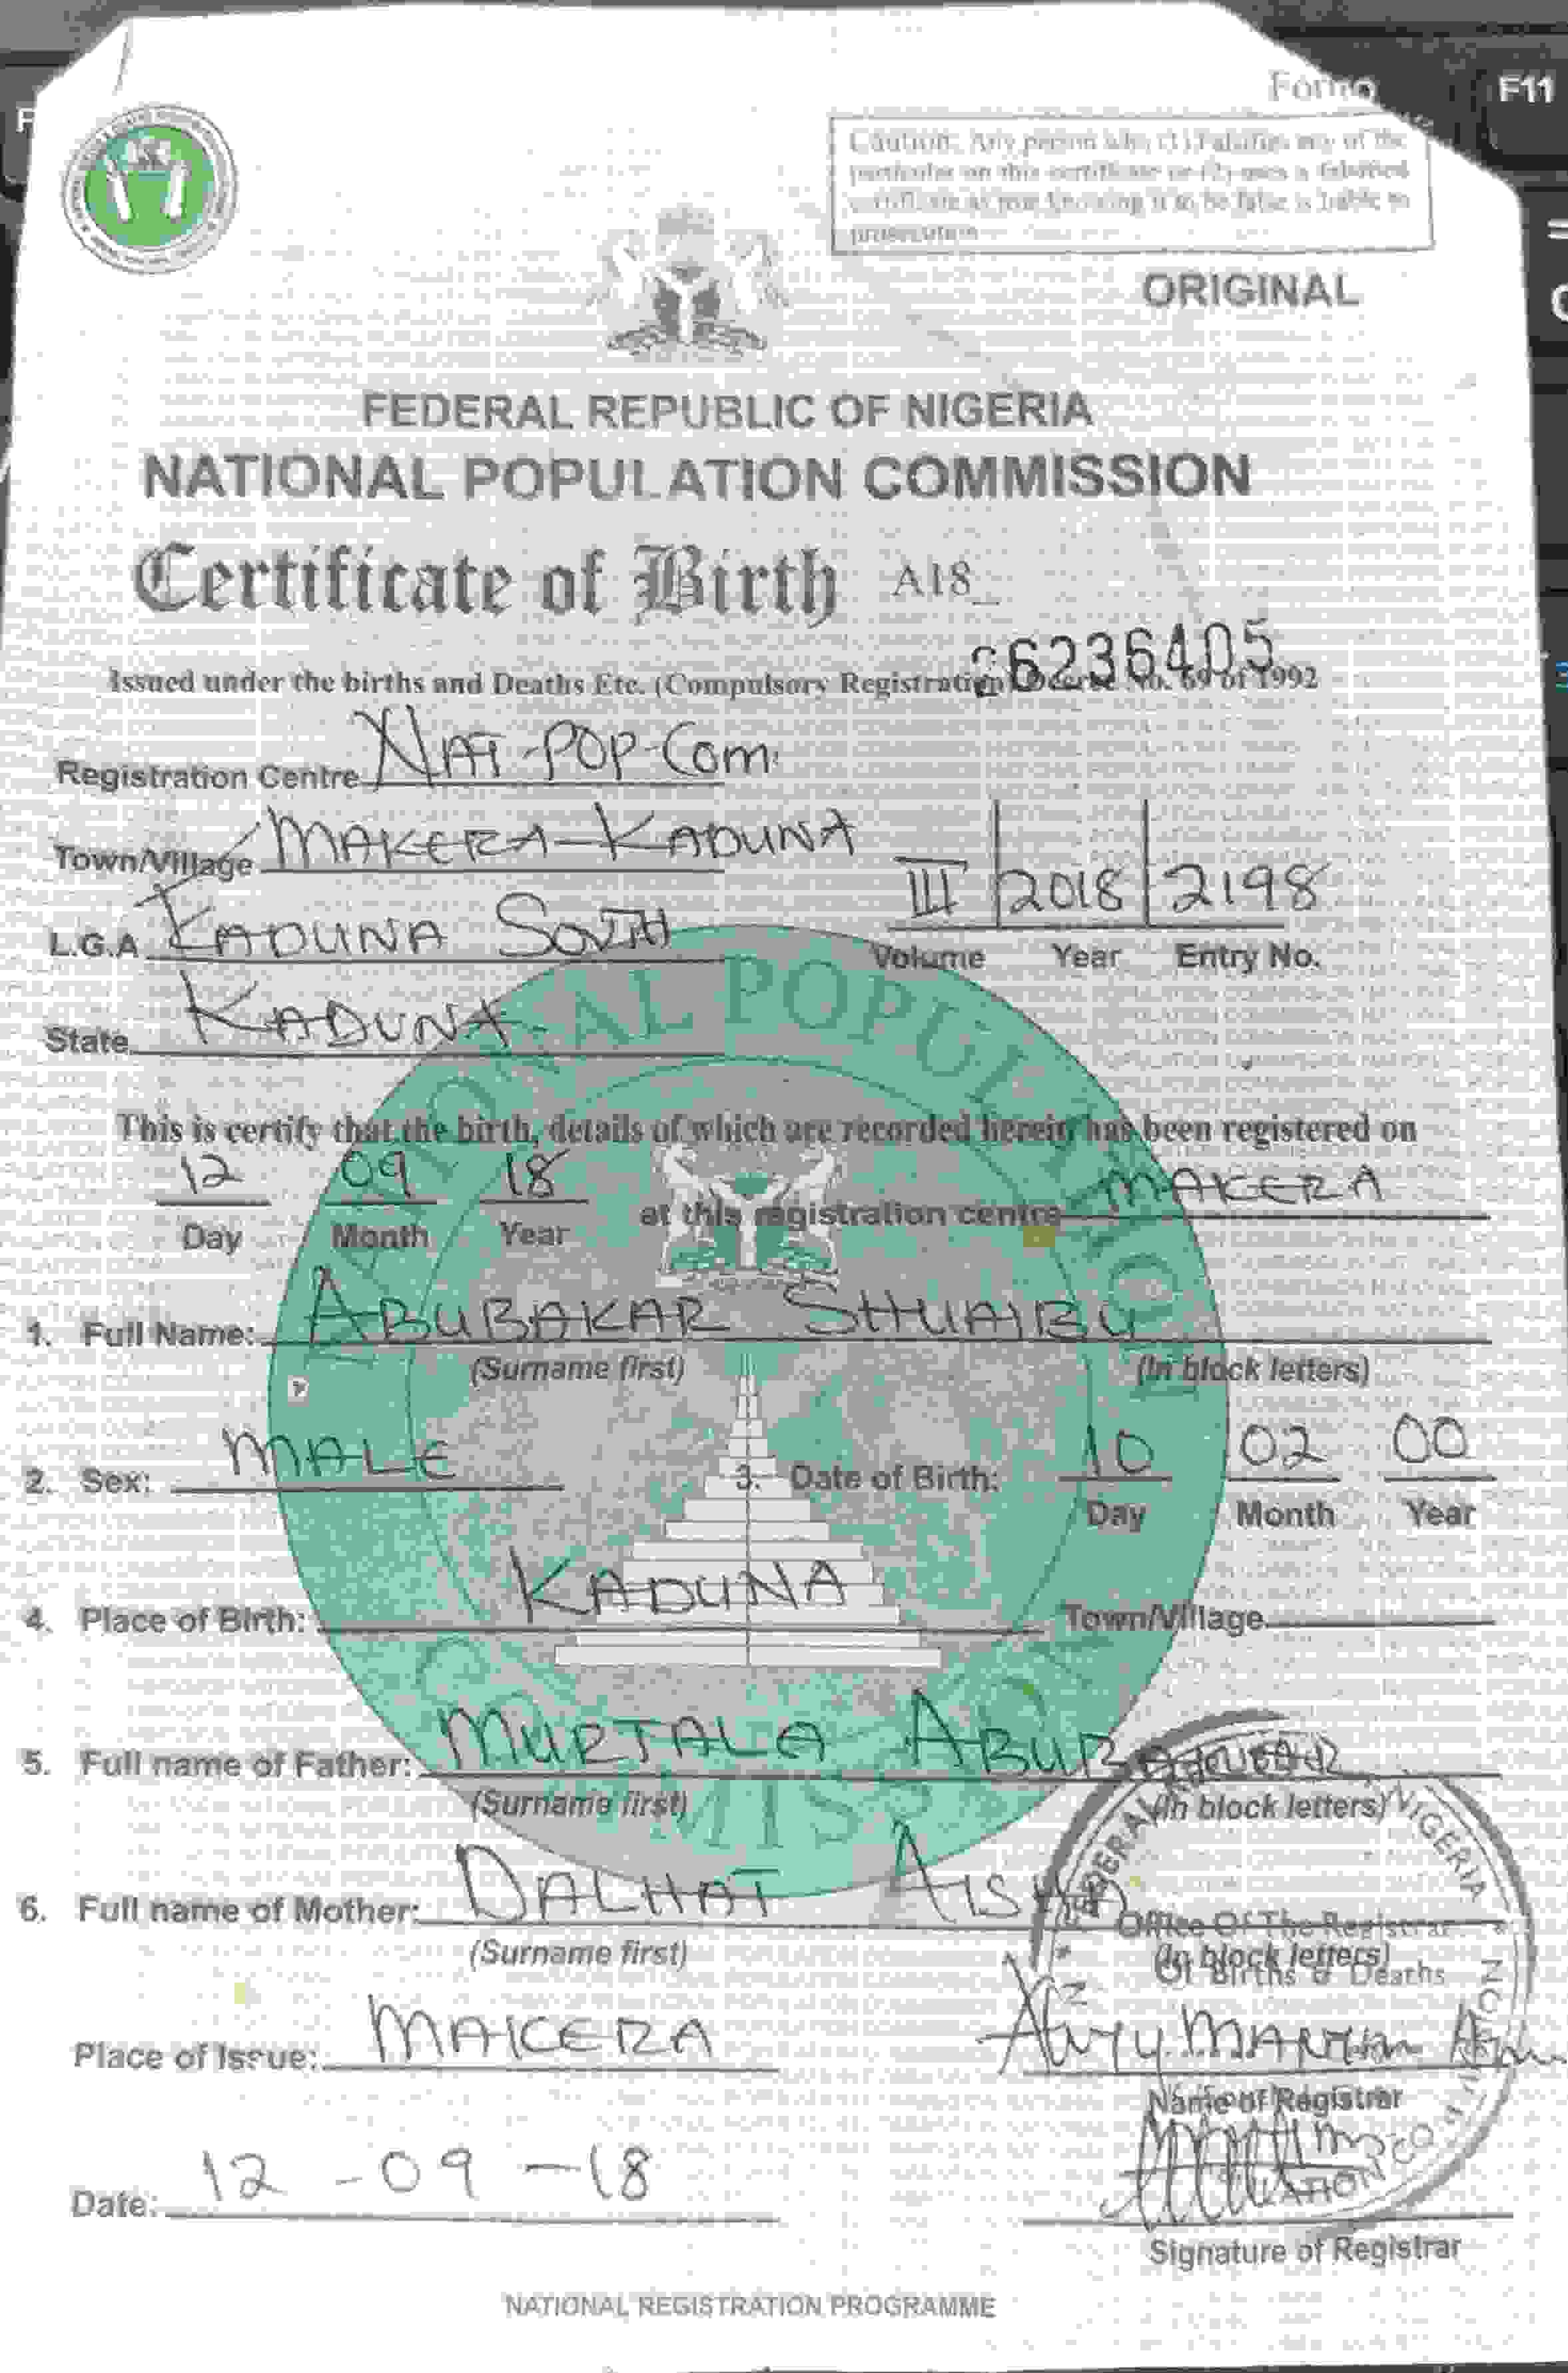 F11
Caution: Any person who (1) Falsifies any of the
particular on this certificate or (2) uses a falsified
certificate as true knowing it to be false is liable to
prosecution
ORIGINAL
FEDERAL REPUBLIC OF NIGERIA
NATIONAL POPULATION COMMISSION
Certificate of Birth A18_
6236405
Issued under the births and Deaths Etc. (Compulsory Registration) Decree No. 69 of 1992
Registration Centre NAT-POP-Com.
Town/Village MAKERA-KADUNA
L.G.A KADUNA SOUTH
III 2018 2198
Volume Year Entry No.
State KADUNA
This is certify that the birth, details of which are recorded herein has been registered on
12 09 18 at this registration centre MAKERA
Day Month Year
1. Full Name: ABUBAKAR SHUAIBU
(Surname first) (In block letters)
2. Sex: MALE 3. Date of Birth: 10 02 00
Day Month Year
4. Place of Birth: KADUNA Town/Village
5. Full name of Father: MURTALA ABUBAKAR
(Surname first) (In block letters)
6. Full name of Mother: DALHAT AISHA
(Surname first) (In block letters)
Office Of The Registrar
Of Births & Deaths
Place of Issue: MAKERA
Name of Registrar
Date: 12-09-18
Signature of Registrar
NATIONAL REGISTRATION PROGRAMME